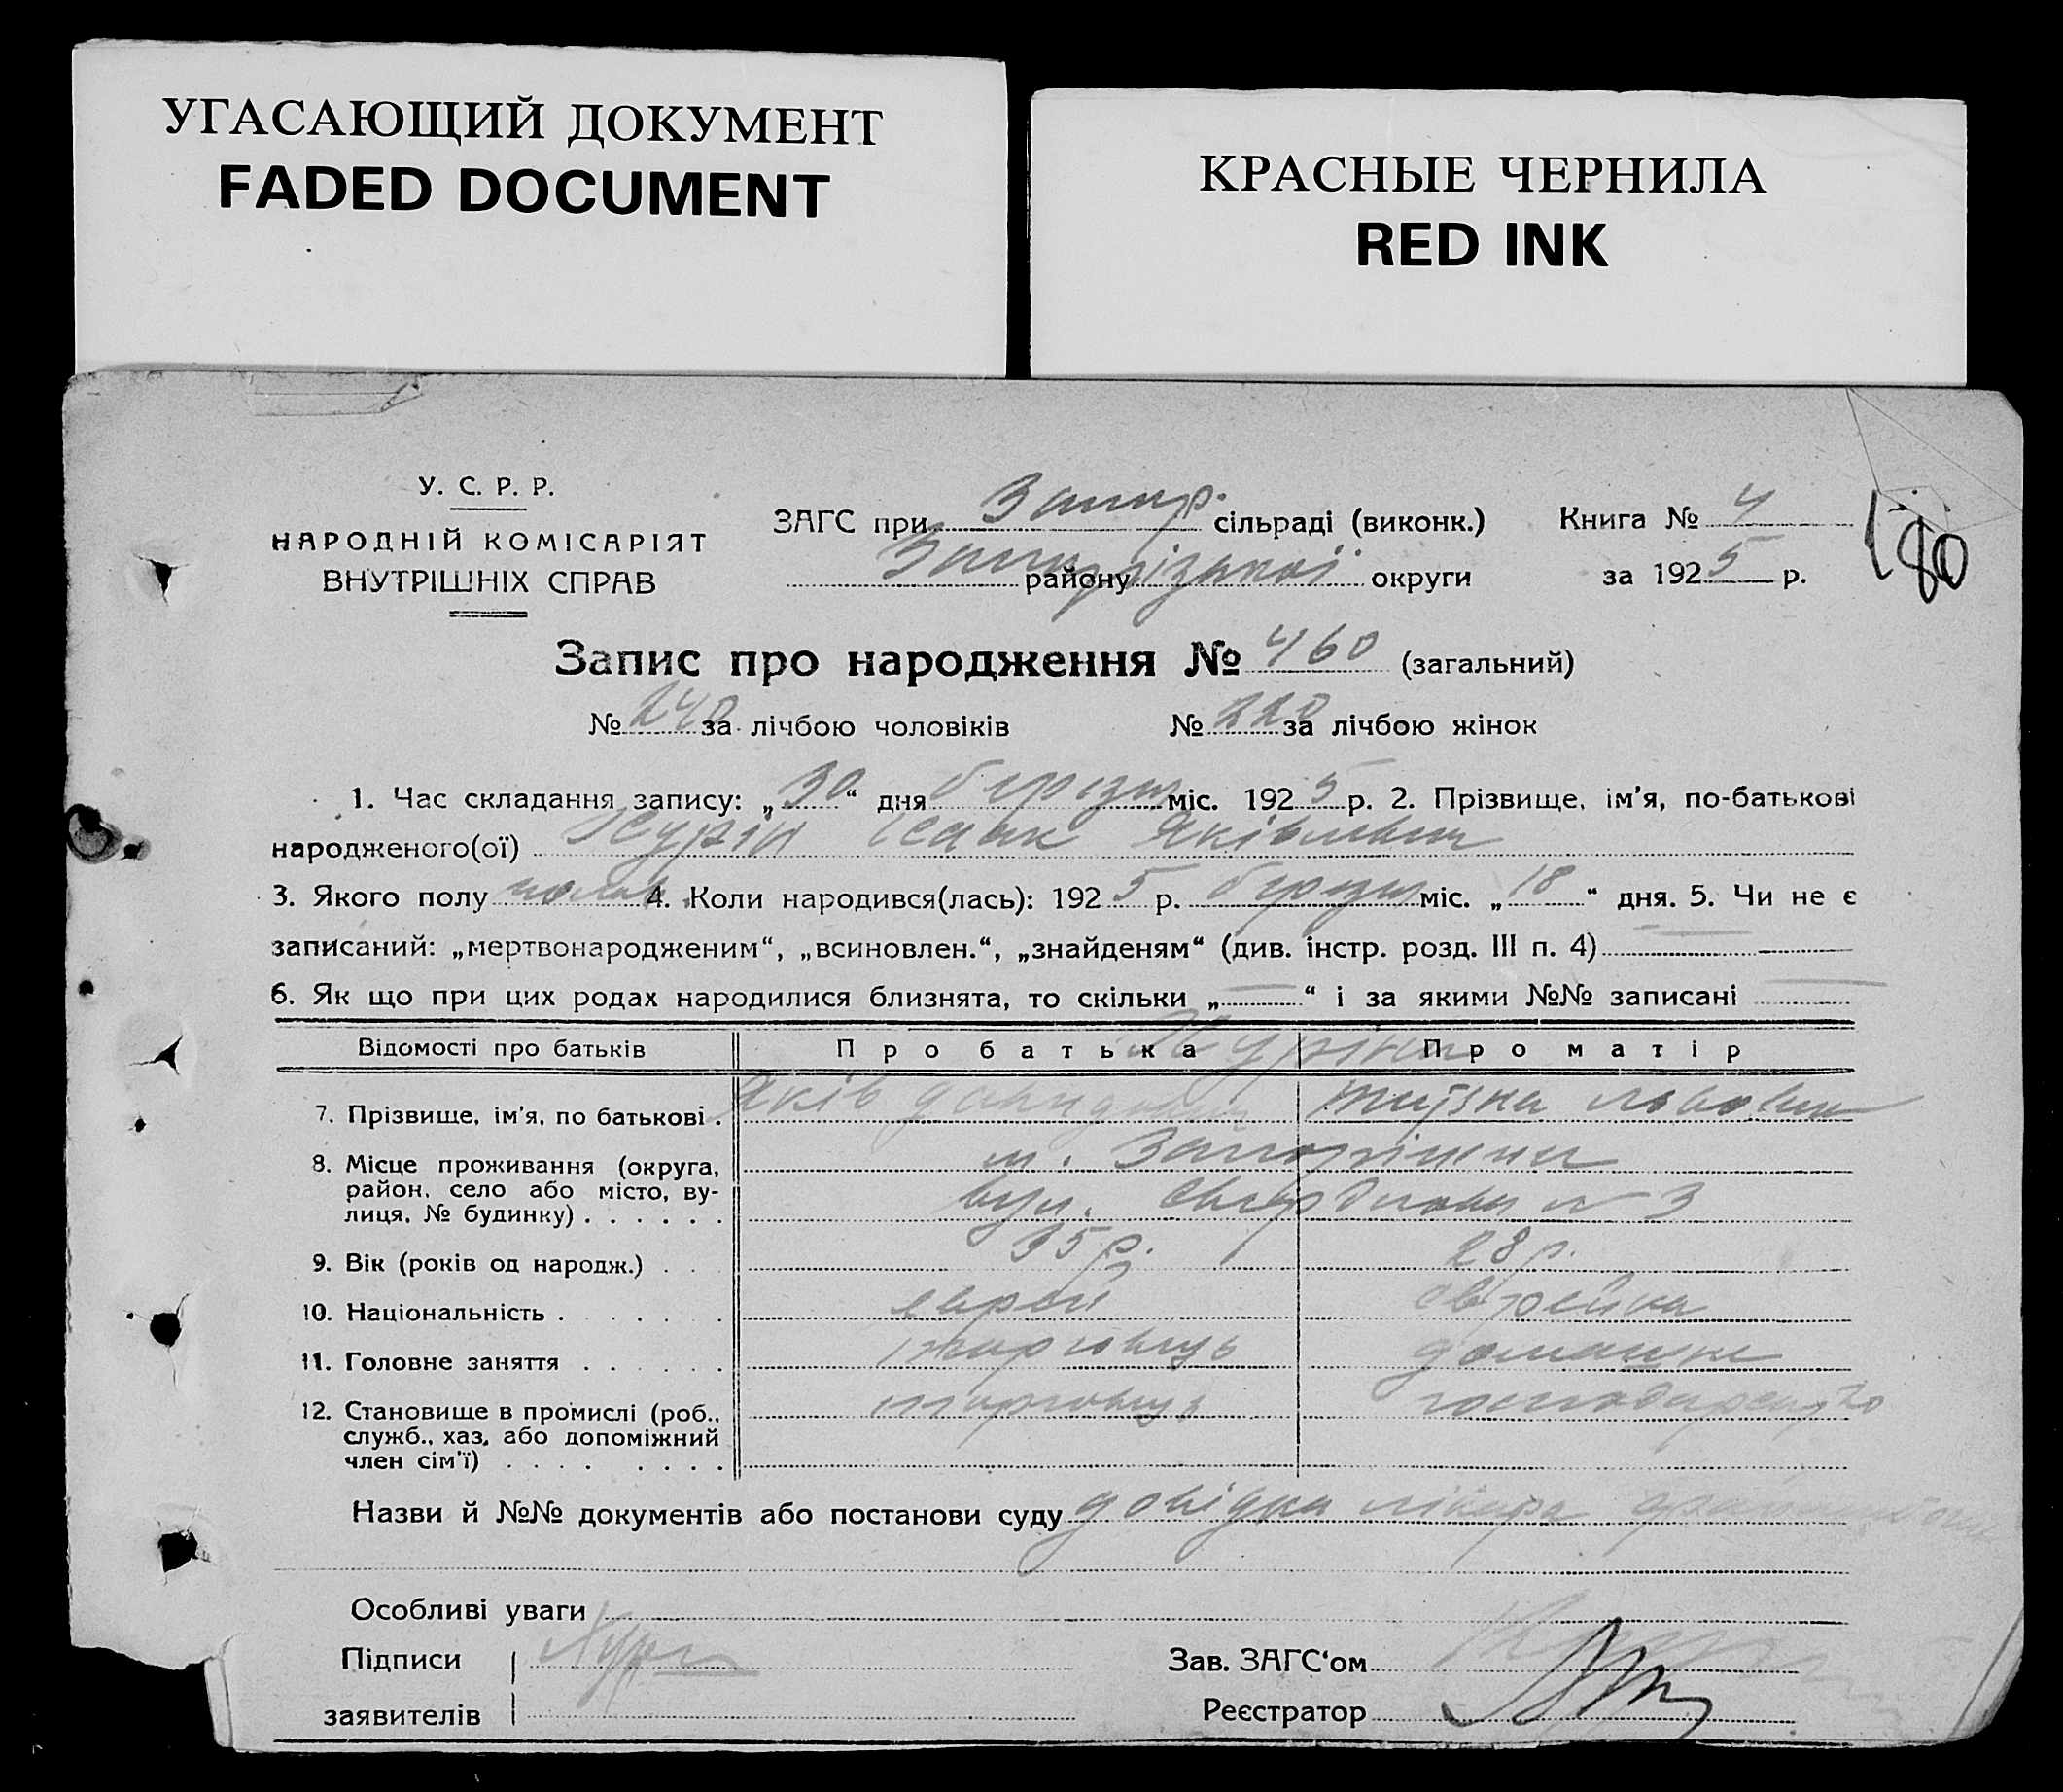 УГАСАЮЩИЙ ДОКУМЕНТ
FADED DOCUMENT
КРАСНЫЕ ЧЕРНИЛА
RED INK
У. С. Р. Р.
НАРОДНІЙ КОМІСАРІЯТ
ВНУТРІШНІХ СПРАВ
ЗАГС при Запор. сільраді (виконк.)
Запорізької району округи
Книга № 4
за 1925 р.
180
Запис про народження № 460 (загальний)
№ 240 за лічбою чоловіків № 220 за лічбою жінок
1. Час складання запису: „30“ дня березня міс. 1925 р. 2. Прізвище, ім'я, по-батькові
народженого(ої) Ісаак Яківлевич
3. Якого полу 4. Коли народився(лась): 1925 р. березня міс. „18“ дня. 5. Чи не є
записаний: „мертвонародженим“, „всиновлен.“, „знайденям“ (див. інстр. розд. III п. 4)
6. Як що при цих родах народилися близнята, то скільки „—“ і за якими №№ записані
Відомості про батьків Про батька Про матір
7. Прізвище, ім'я, по батькові. Яків Давидович Львовна
8. Місце проживання (округа, м. Запоріжжя
район, село або місто, ву-
лиця, № будинку) . . . . . . вул. Свердлова № 3
9. Вік (років од народж.) . . 35 р. 28 р.
10. Національність . . . . . . еврей еврейка
11. Головне заняття . . . . . . торговець домашне
12. Становище в промислі (роб., торговець господарство
служб., хаз, або допоміжний
член сім'ї) . . . . . . . .
Назви й №№ документів або постанови суду довідка лікаря
Особливі уваги
Підписи
заявителів
Зав. ЗАГС'ом
Реєстратор